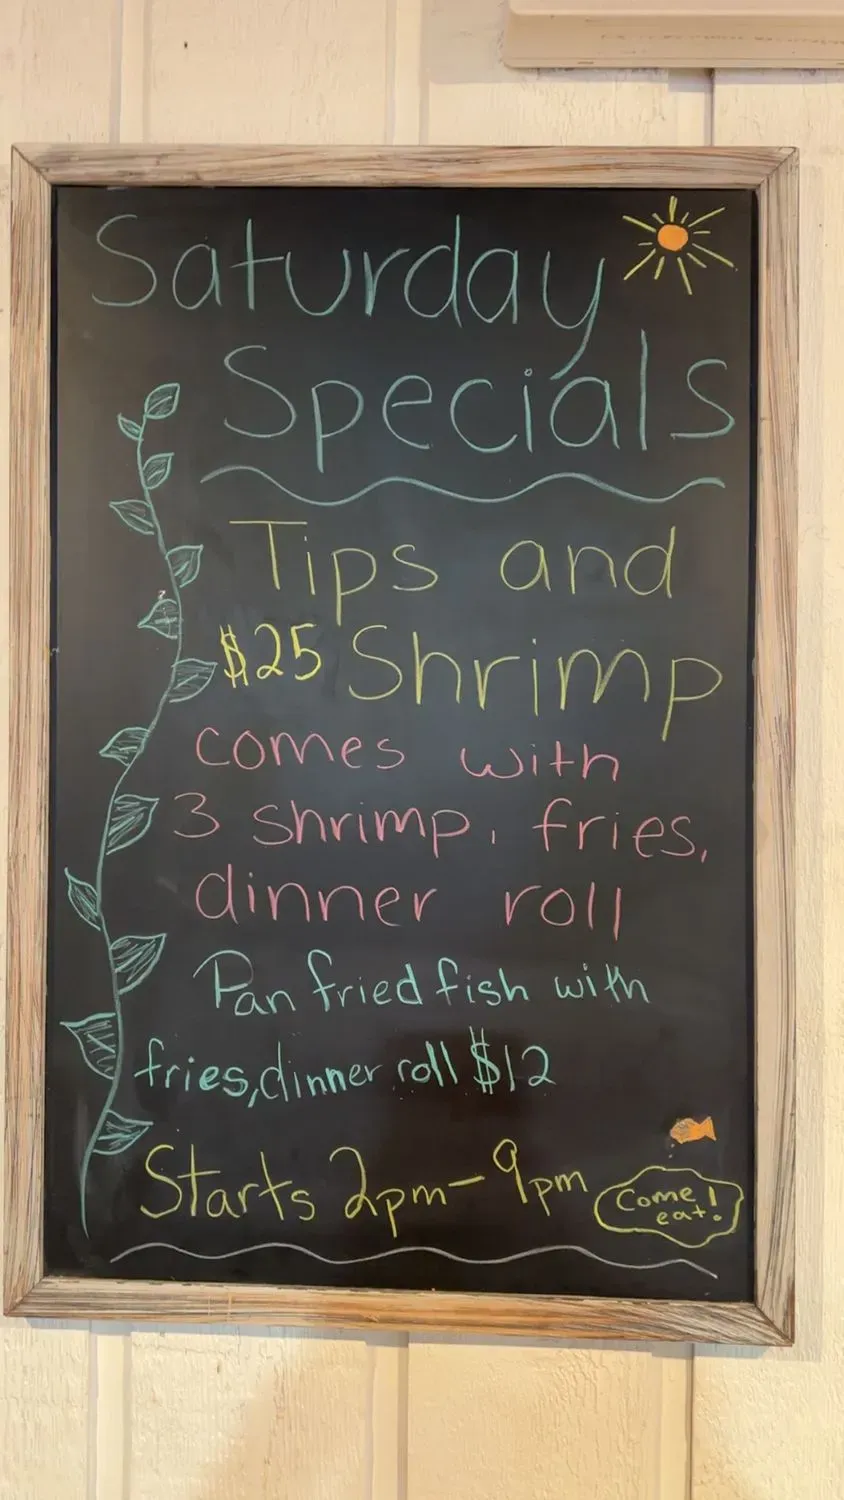 Saturday
Specials
Tips and
$25 Shrimp
comes with
3 shrimp, fries,
dinner roll
Pan fried fish with
fries, dinner roll $12
Starts 2pm-9pm
Come
eat!